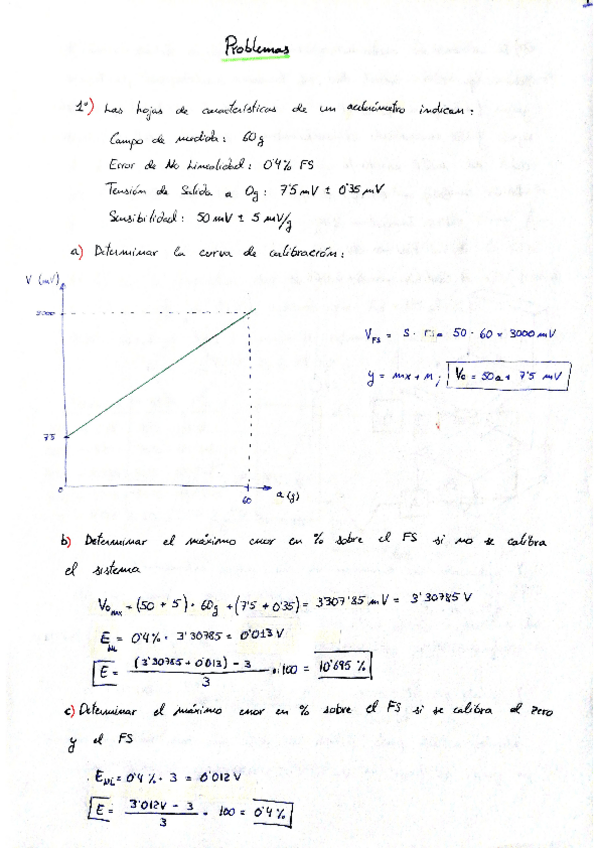 Problemas
1º) Las hojas de características de un acelerómetro indican:
Campo de medida: 60g
Error de No Linealidad: 0'4% FS
Tensión de Salida a 0g: 7'5 mV ± 0'35 mV
Sensibilidad: 50 mV ± 5 mV/g
a) Determinar la curva de calibración:
V (mV)
3000
7'5
0
60
a (g)
V_FS = S · r = 50 · 60 = 3000 mV
y = mx + n ; Vo = 50a + 7'5 mV
b) Determinar el máximo error en % sobre el FS si no se calibra
el sistema
Vo_max = (50 + 5) · 60g + (7'5 + 0'35) = 3307'85 mV = 3'30785 V
E_NL = 0'4% · 3'30785 = 0'013 V
E = (3'30785 + 0'013) - 3 / 3 · 100 = 10'695 %
c) Determinar el máximo error en % sobre el FS si se calibra el zero
y el FS
E_NL = 0'4 % · 3 = 0'012 V
E = 3'012V - 3 / 3 · 100 = 0'4 %